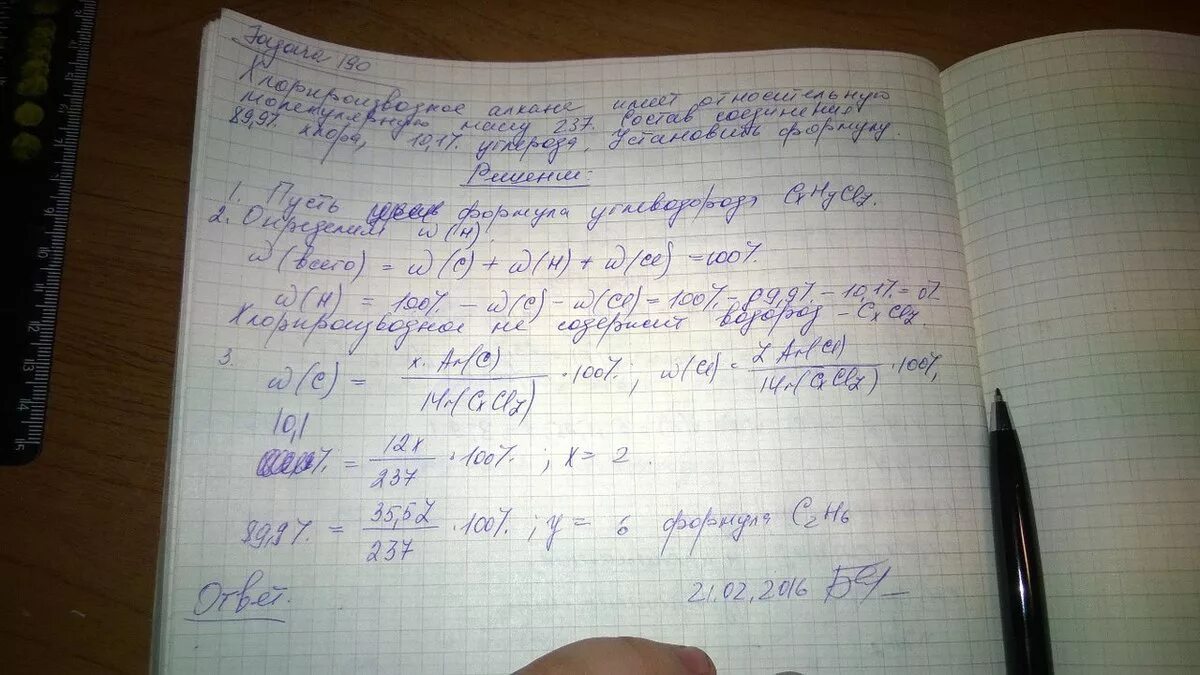 Задача 190
Хлорпроизводное алкана имеет относительную
молекулярную массу 237. Состав соединения
89,9% хлора, 10,1% углерода. Установить формулу.
Решение:
1. Пусть формула углеводорода CxHyClz.
2. Определим ω(H).
ω(всего) = ω(C) + ω(H) + ω(Cl) = 100%.
ω(H) = 100% - ω(C) - ω(Cl) = 100% - 89,9% - 10,1% = 0%
Хлорпроизводное не содержит водород - CxClz.
3. ω(C) = x·Ar(C) / Mr(CxClz) · 100%; ω(Cl) = z·Ar(Cl) / Mr(CxClz) · 100%,
10,1
% = 12x / 237 · 100%; x = 2.
89,9% = 35,5z / 237 · 100%; y = 6 формула C2H6
Ответ.
21.02.2016
12
13
14
15